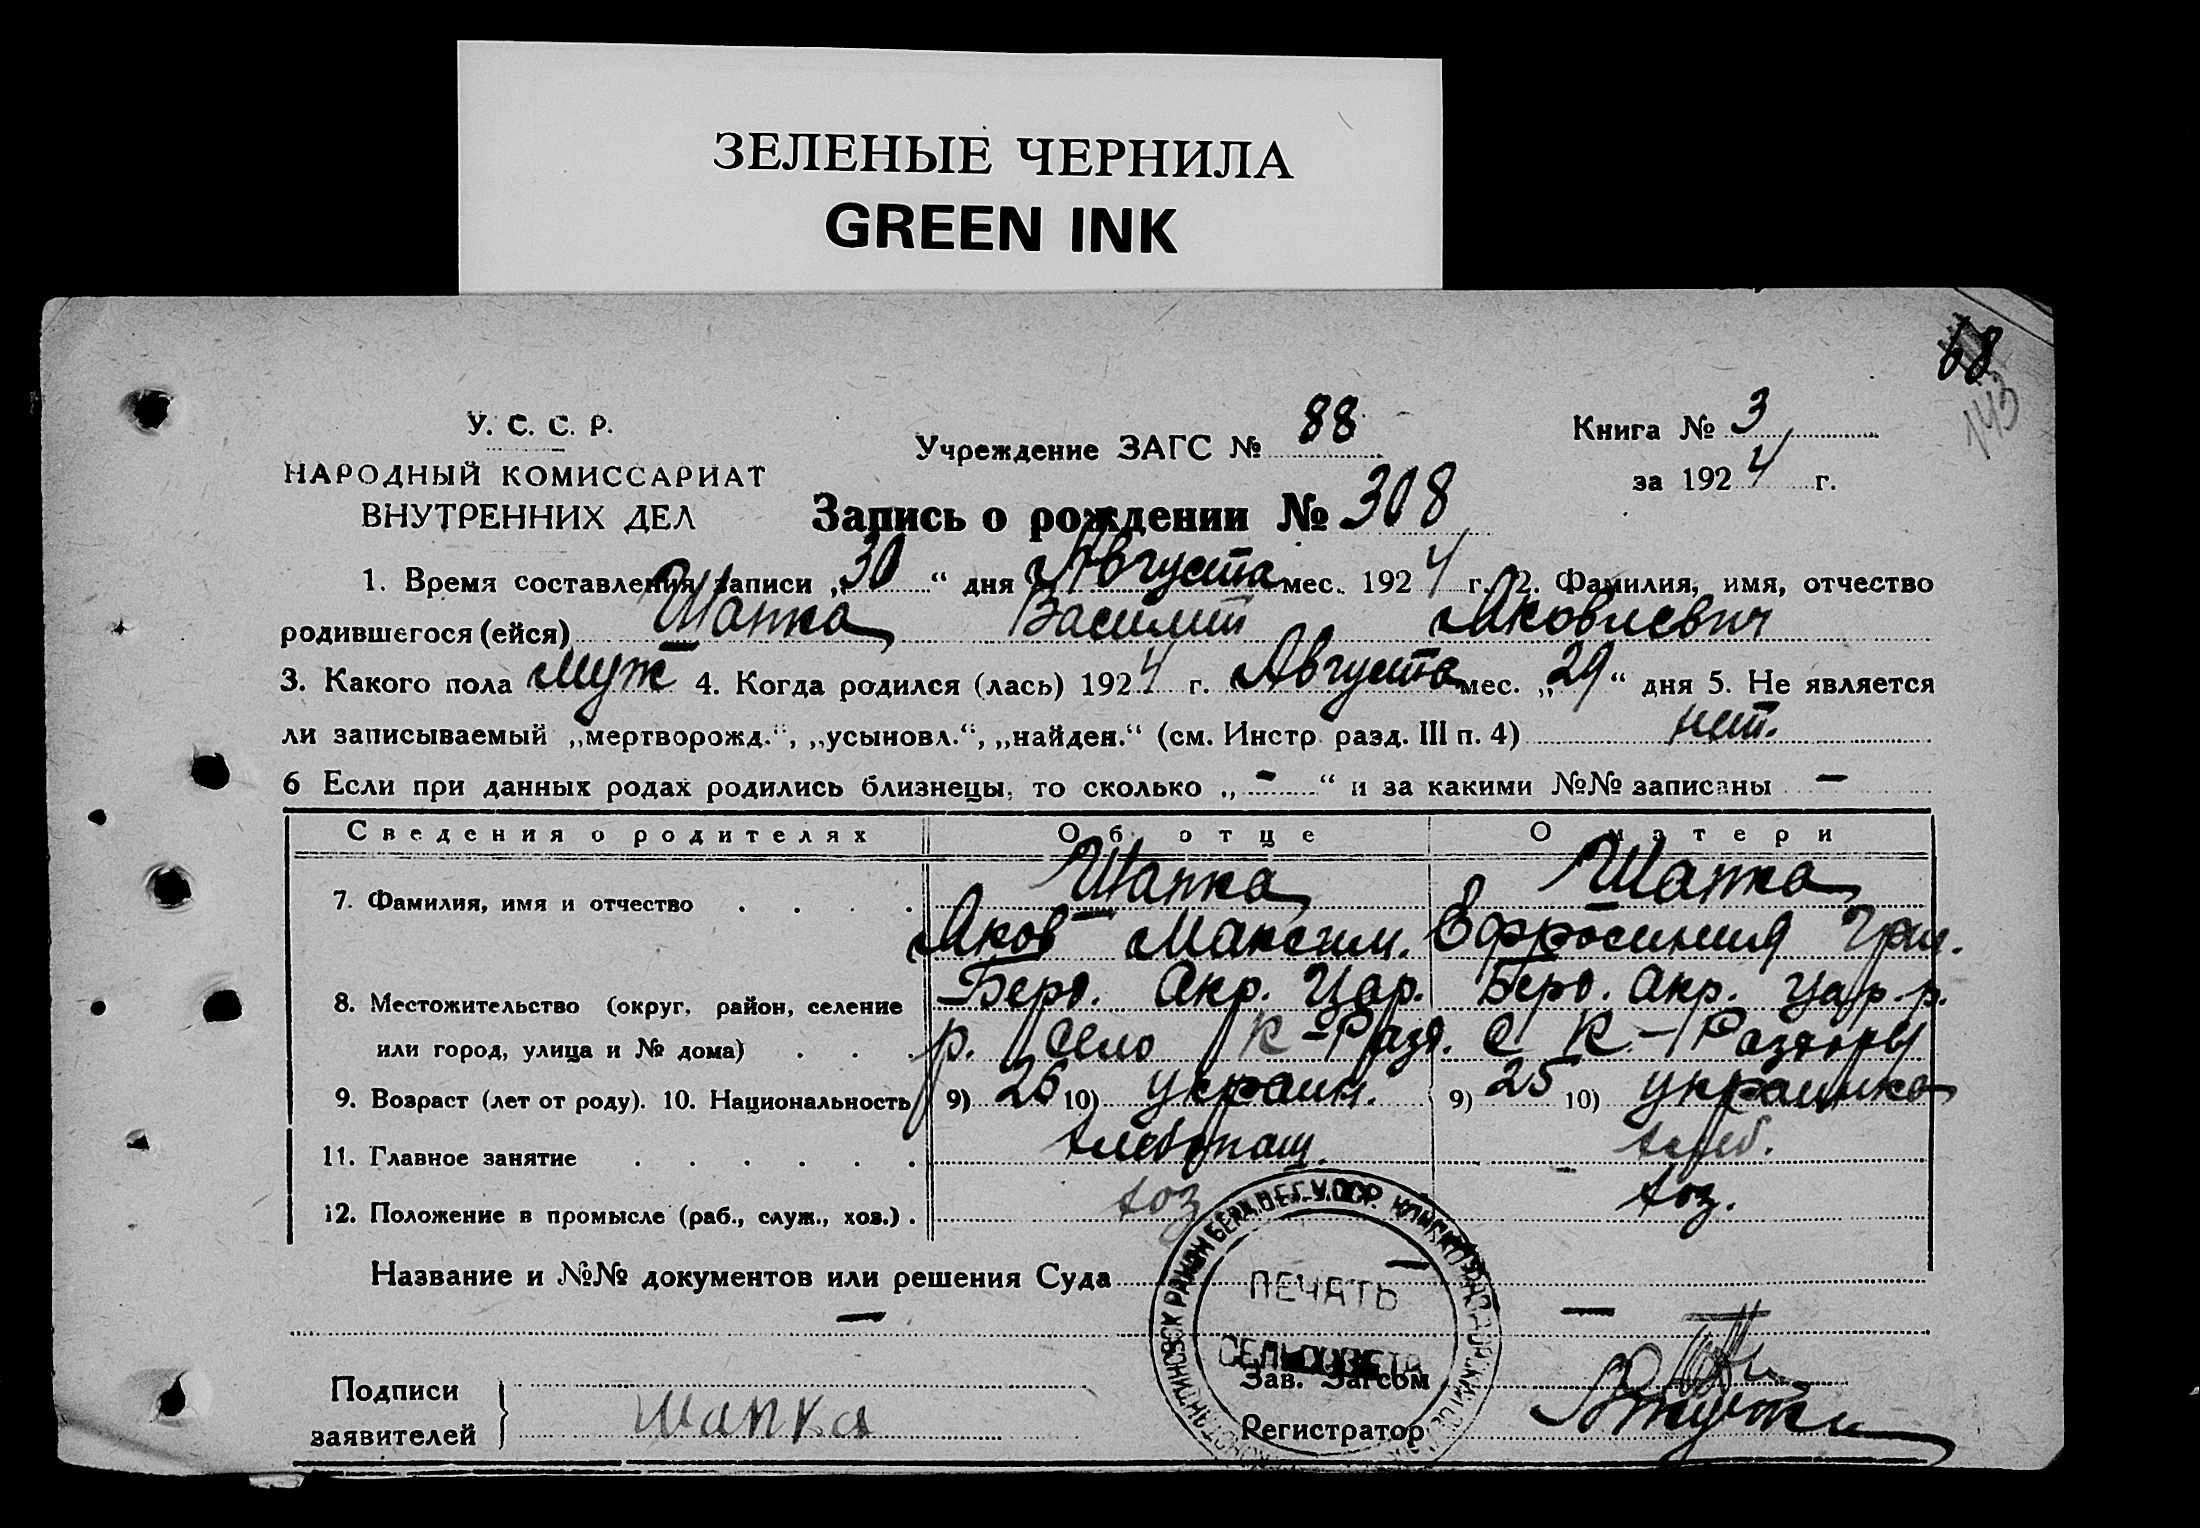 ЗЕЛЕНЫЕ ЧЕРНИЛА
GREEN INK
68
143
У. С. С. Р.
НАРОДНЫЙ КОМИССАРИАТ
ВНУТРЕННИХ ДЕЛ
Учреждение ЗАГС № 88
Книга № 3
за 1924 г.
Запись о рождении № 308
1. Время составления записи „30“ дня Августа мес. 1924 г. 2. Фамилия, имя, отчество
родившегося (ейся) Шапка Василий Яковлевич
3. Какого пола муж 4. Когда родился (лась) 1924 г. Августа мес. „29“ дня 5. Не является
ли записываемый „мертворожд.“, „усыновл.“, „найден.“ (см. Инстр. разд. III п. 4) нет.
6 Если при данных родах родились близнецы, то сколько „-“ и за какими №№ записаны -
Сведения о родителях Об отце О матери
7. Фамилия, имя и отчество Шапка Шапка
Яков Максим. Ефросиния Гри.
8. Местожительство (округ, район, селение Берд. Окр. Цар. Берд. Окр. Цар. р.
или город, улица и № дома) р. село К-Разд. С К.-Раздоры
9. Возраст (лет от роду). 10. Национальность 9) 26 10) украин. 9) 25 10) украинка
11. Главное занятие хлебопаш. хлеб.
12. Положение в промысле (раб., служ., хоз.) хоз хоз.
Название и №№ документов или решения Суда —
— —
ПЕЧАТЬ
СЕЛЬСОВЕТА
Подписи
заявителей
Шапка
Зав. Загсом
Регистратор